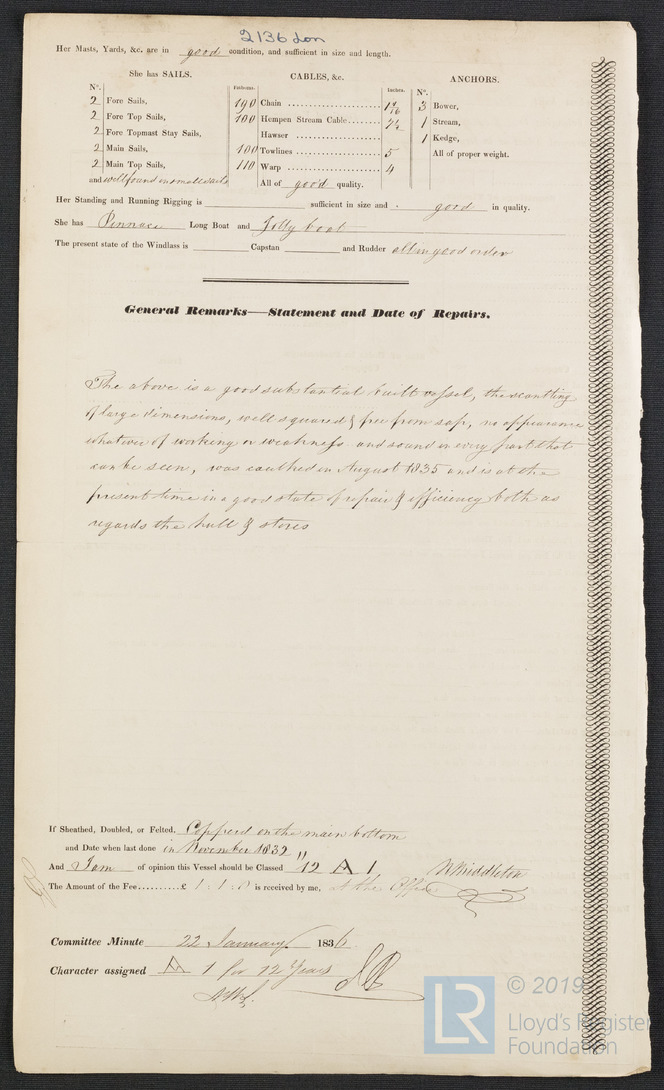 2136 Lon
Her Masts, Yards, &c. are in good condition, and sufficient in size and length.
She has SAILS.
CABLES, &c.
ANCHORS.
N°. Fathoms. Inches. N°.
2 Fore Sails, 190 Chain 1 9/16 3 Bower,
2 Fore Top Sails, 100 Hempen Stream Cable 7½ 1 Stream,
2 Fore Topmast Stay Sails, Hawser 1 Kedge,
2 Main Sails, 100 Towlines 5 All of proper weight.
2 Main Top Sails, 110 Warp 4
and well found in small sails All of good quality.
Her Standing and Running Rigging is sufficient in size and good in quality.
She has Pinnace Long Boat and Jolly boat
The present state of the Windlass is Capstan and Rudder all in good order
General Remarks—Statement and Date of Repairs.
The above is a good substantial built vessel, the scantling
of large dimensions, well squared & free from sap, no appearance
whatever of working or weakness and sound in every part that
can be seen, was caulked in August 1835 and is at the
present time in a good state of repair & efficiency both as
regards the hull & stores
If Sheathed, Doubled, or Felted. Copperd on the main bottom
and Date when last done in November 1832
And I am of opinion this Vessel should be Classed 12 A 1 W Middleton
The Amount of the Fee..........£ 1 : 1 : 0 is received by me, at the Office
Committee Minute 22 January 1836
Character assigned A 1 for 12 Years
© 2019
LR
Lloyd's Register
Foundation